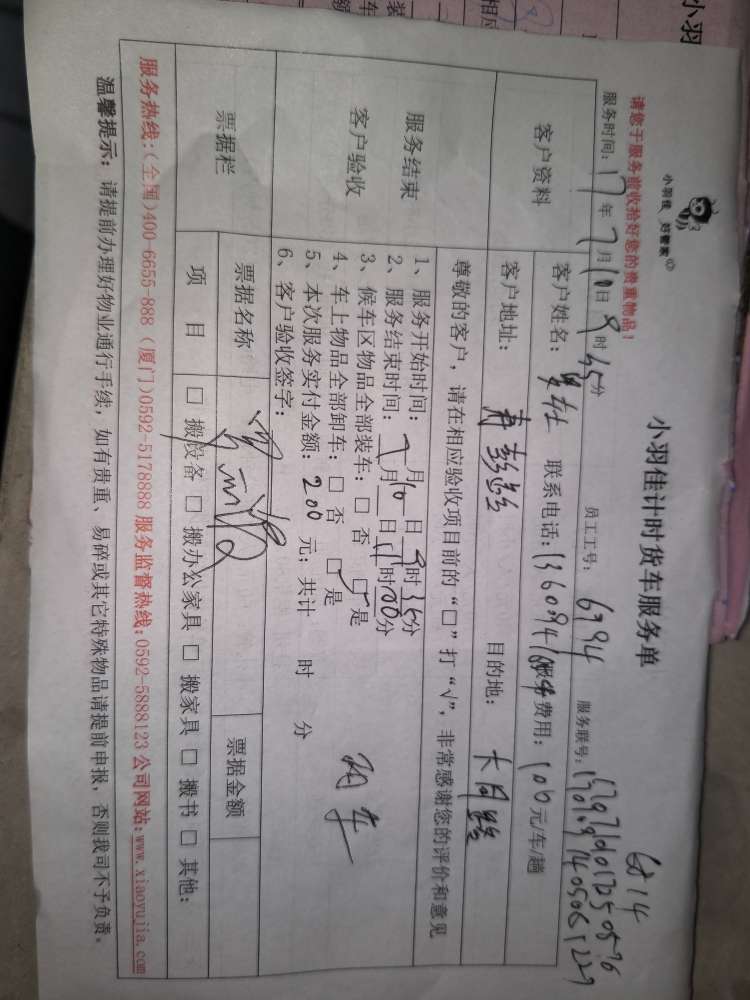 小羽佳 好管家
小羽佳计时货车服务单
请您于服务前收拾好您的贵重物品！
6814
服务时间：17年7月10日9时35分 员工工号：6794 服务联号：
客户资料 客户姓名： 联系电话： 服务费用：100元/车/趟
客户地址： 目的地：大同路
尊敬的客户，请在相应验收项目前的“□”打“√”，非常感谢您的评价和意见
服务结束
客户验收
1、服务开始时间：7月10日9时35分
2、服务结束时间：7月10日11时00分
3、候车区物品全部装车：□ 否 □ 是
4、车上物品全部卸车：□ 否 □ 是
5、本次服务实付金额：200元；共计 时 分
6、客户验收签字：
两车
票据栏 票据名称 票据金额
项 目 □ 搬设备 □ 搬办公家具 □ 搬家具 □ 搬书 □ 其他：
服务热线：(全国)400-6655-888 (厦门)0592-5178888 服务监督热线：0592-5888123 公司网站：www.xiaoyujia.com
温馨提示：请提前办理好物业通行手续，如有贵重、易碎或其它特殊物品请提前申报，否则我司不予负责。
小羽